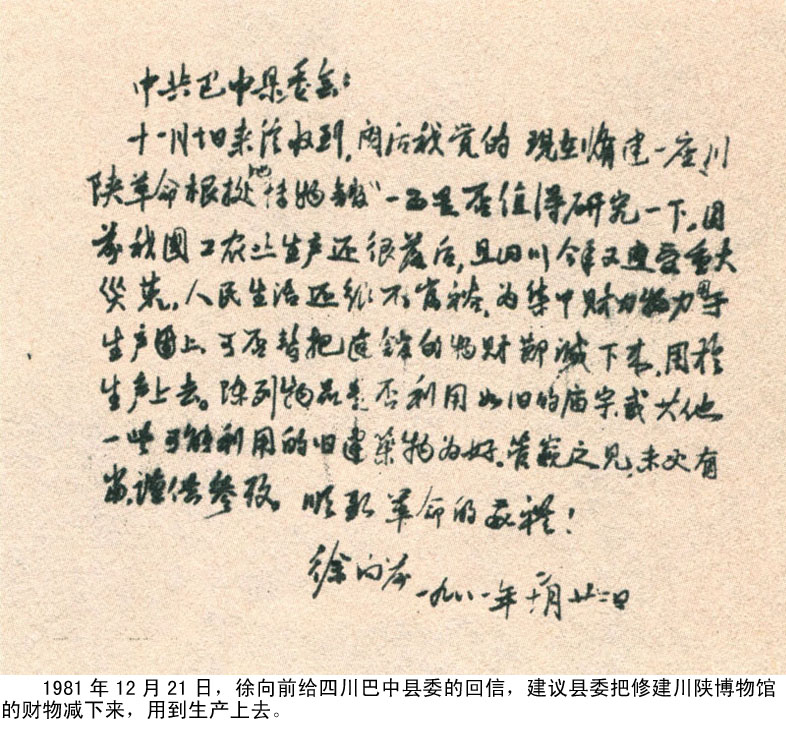 中共巴中县委会：
十一月十日来信收到，阅后我觉的 现在脩建一座川
陕革命根据地“博物馆”一事是否值得研究一下。因
为我國工农业生产还很落后，且四川今年又遭受重大
災荒，人民生活还很不富裕，为集中财力物力用于
生产上，可否暂把这馆的物财都减下来，用於
生产上去。陈列物品是否利用些旧的庙宇或其他
一些可能利用的旧建築物为好。管窥之见，未必有
当，谨供参攷。顺致 革命的敬禮！
徐向前
一九八一年十二月廿二日
1981 年 12 月 21 日，徐向前给四川巴中县委的回信，建议县委把修建川陕博物馆
的财物减下来，用到生产上去。